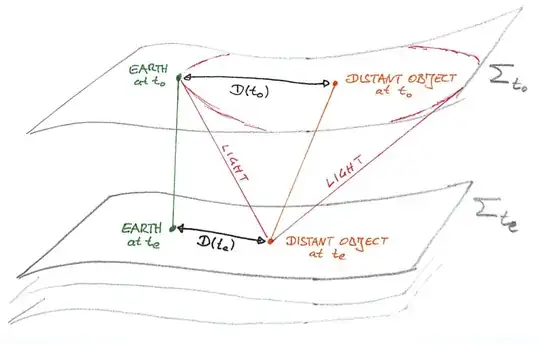 EARTH
at t₀
D(t₀)
DISTANT OBJECT
at t₀
Σt₀
LIGHT
LIGHT
EARTH
at te
D(te)
DISTANT OBJECT
at te
Σte